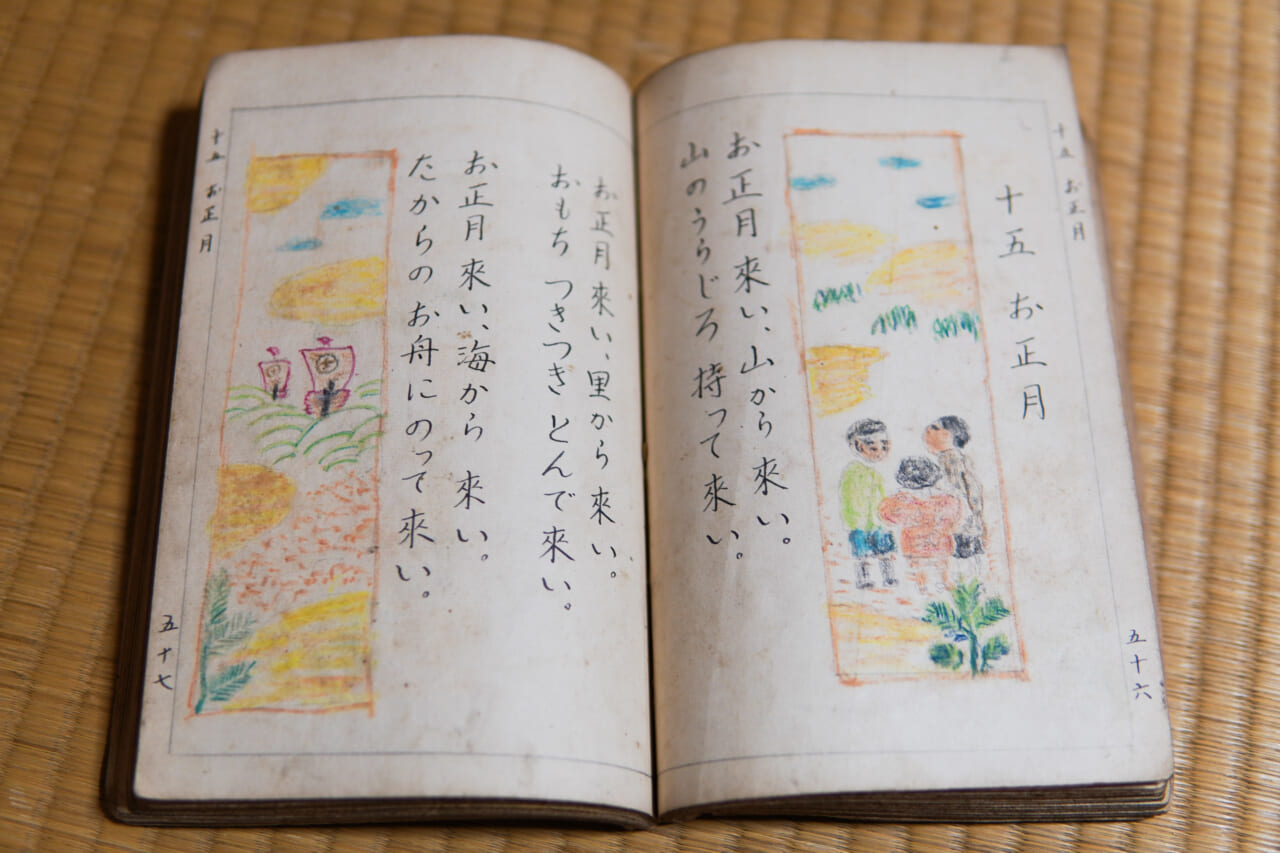 十五 お正月
五十六
十五 お正月
お正月 來い、山から 來い。
山の うらじろ 持って 來い。
お正月 來い、里から 來い。
おもち つきつき とんで 來い。
お正月 來い、海から 來い。
たからの お舟に のって 來い。
十五 お正月
五十七